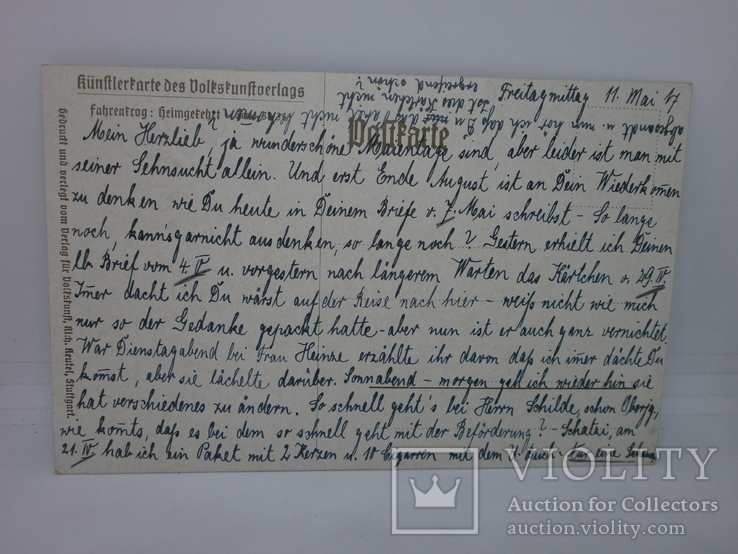 Künstlerkarte des Volkskunstverlags
Fahrenkrog: Heimgekehrt
Postkarte
Gedruckt und verlegt vom Verlag für Volkskunst, Rich. Keutel, Stuttgart.
ergreifend schön?
Ist das Kärtchen nicht
Freitagmittag 11. Mai 17
Mein Herzlieb, ja wunderschöne Maientage sind, aber leider ist man mit
seiner Sehnsucht allein. Und erst Ende August ist an Dein Wiederkommen
zu denken wie Du heute in Deinem Briefe v. 7. Mai schreibst - So lange
noch, kann's garnicht ausdenken, so lange noch? Gestern erhielt ich Deinen
lb. Brief vom 4. IV u. vorgestern nach längerem Warten das Kärtchen v. 29. IV.
Immer dacht ich Du wärst auf der Reise nach hier - weiß nicht wie mich
nur so der Gedanke gepackt hatte - aber nun ist er auch ganz vernichtet.
War Dienstagabend bei Frau Heinze erzählte ihr davon daß ich immer dächte Du
kommst, aber sie lächelte darüber. Sonnabend - morgen geh ich wieder hin sie
hat verschiedenes zu ändern. So schnell geht's bei Herrn Schilde, schon Oberjg.,
wie kommts, daß es bei dem so schnell geht mit der Beförderung? - Schatzi, am
21. IV hab ich ein Paket mit 2 Kerzen u. 10 Cigarren
VIOLITY
Auction for Collectors
auction.violity.com